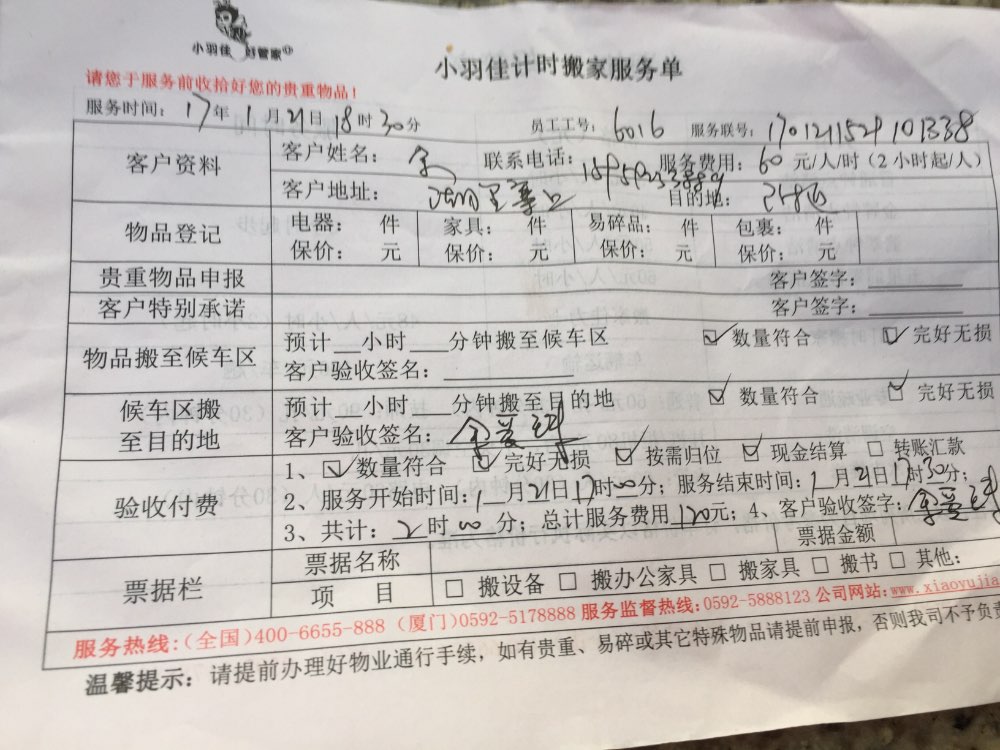 小羽佳 好管家
小羽佳计时搬家服务单
请您于服务前收拾好您的贵重物品！
服务时间： 17年 1月21日18时30分 员工工号： 6016 服务联号：
客户资料 客户姓名： 余 联系电话： 服务费用：60元/人/时（2小时起/人）
客户地址： 湖里 目的地：
物品登记 电器： 件 家具： 件 易碎品： 件 包裹： 件
保价： 元 保价： 元 保价： 元 保价： 元
贵重物品申报 客户签字：
客户特别承诺 客户签字：
物品搬至候车区 预计__小时___分钟搬至候车区 ☑数量符合 ☑完好无损
客户验收签名：
候车区搬至目的地 预计__小时___分钟搬至目的地 ☑数量符合 ☑完好无损
客户验收签名：
验收付费 1、☑数量符合 ☑完好无损 ☑按需归位 ☑现金结算 □转账汇款
2、服务开始时间：1月21日17时00分；服务结束时间：1月21日17时30分；
3、共计：2时00分；总计服务费用120元；4、客户验收签字：
票据栏 票据名称 票据金额
项 目 □ 搬设备 □ 搬办公家具 □ 搬家具 □ 搬书 □ 其他：
服务热线：(全国)400-6655-888 (厦门)0592-5178888 服务监督热线：0592-5888123 公司网站：www.xiaoyujia
温馨提示：请提前办理好物业通行手续，如有贵重、易碎或其它特殊物品请提前申报，否则我司不予负责